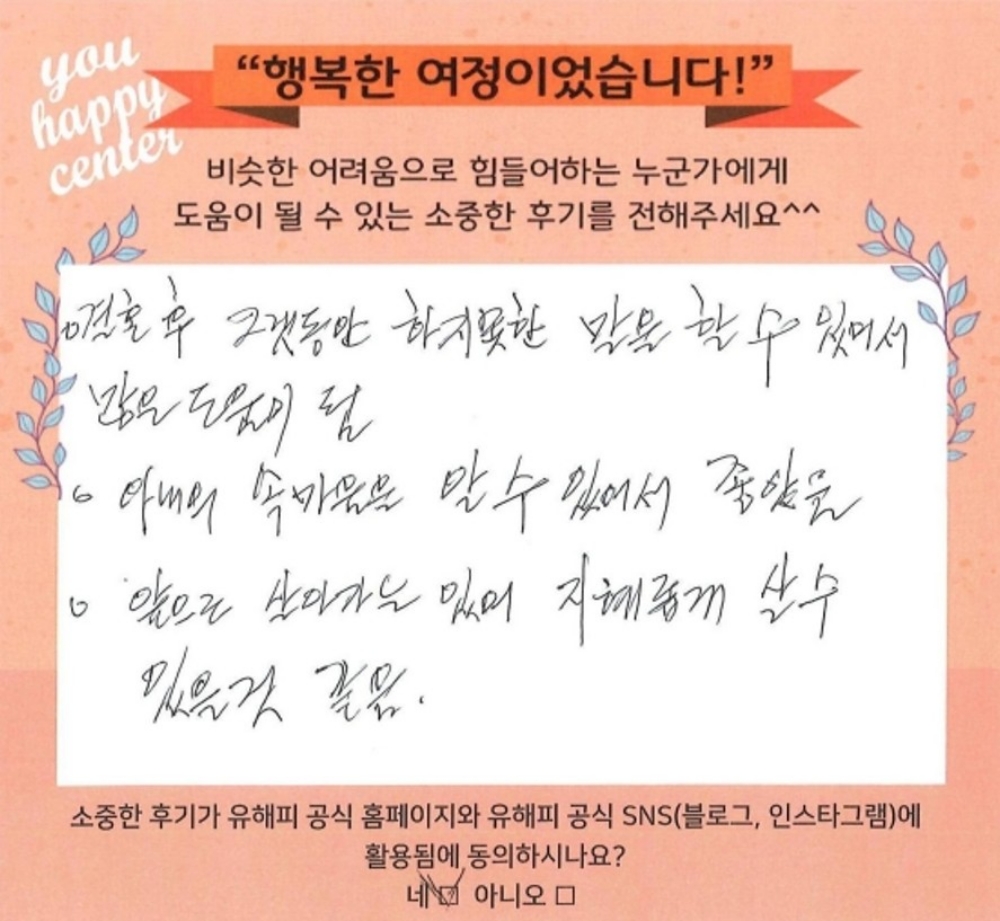 you
happy
center
“행복한 여정이었습니다!”
비슷한 어려움으로 힘들어하는 누군가에게
도움이 될 수 있는 소중한 후기를 전해주세요^^
○결혼 후 그랫동안 하지못한 말을 할 수 있어서
많은 도움이 됨
○ 아내의 속마음을 알 수 있어서 좋았음
○ 앞으로 살아가는 있어 지혜롭게 살 수
있을것 같음.
소중한 후기가 유해피 공식 홈페이지와 유해피 공식 SNS(블로그, 인스타그램)에
활용됨에 동의하시나요?
네 ☑ 아니오 □